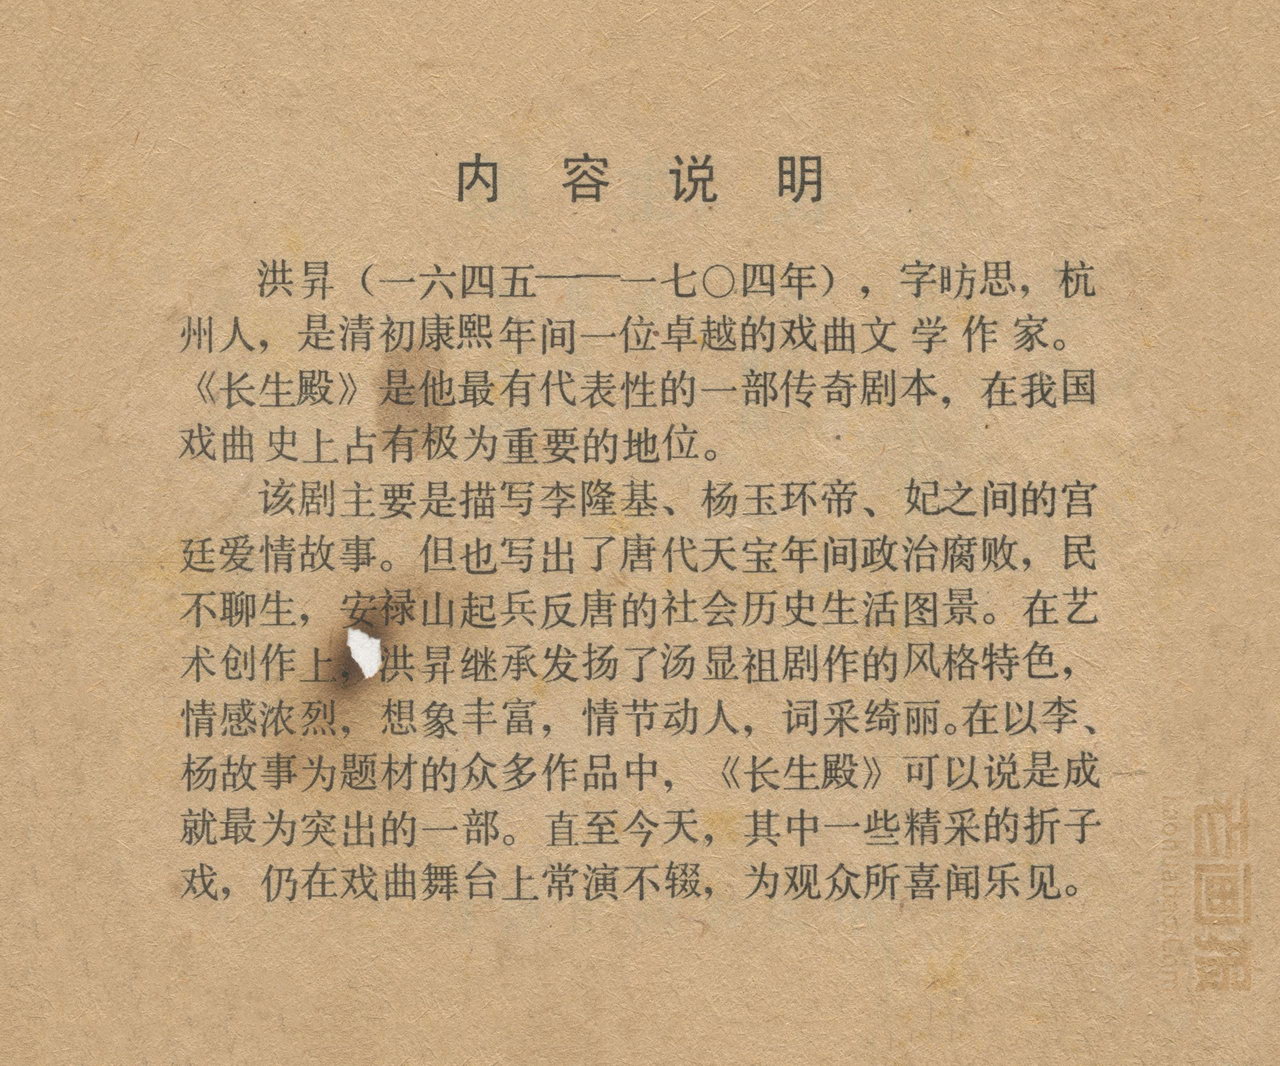 内容说明
洪昇（一六四五——一七〇四年），字昉思，杭
州人，是清初康熙年间一位卓越的戏曲文学作家。
《长生殿》是他最有代表性的一部传奇剧本，在我国
戏曲史上占有极为重要的地位。
该剧主要是描写李隆基、杨玉环帝、妃之间的宫
廷爱情故事。但也写出了唐代天宝年间政治腐败，民
不聊生，安禄山起兵反唐的社会历史生活图景。在艺
术创作上，洪昇继承发扬了汤显祖剧作的风格特色，
情感浓烈，想象丰富，情节动人，词采绮丽。在以李、
杨故事为题材的众多作品中，《长生殿》可以说是成
就最为突出的一部。直至今天，其中一些精采的折子
戏，仍在戏曲舞台上常演不辍，为观众所喜闻乐见。
老画报